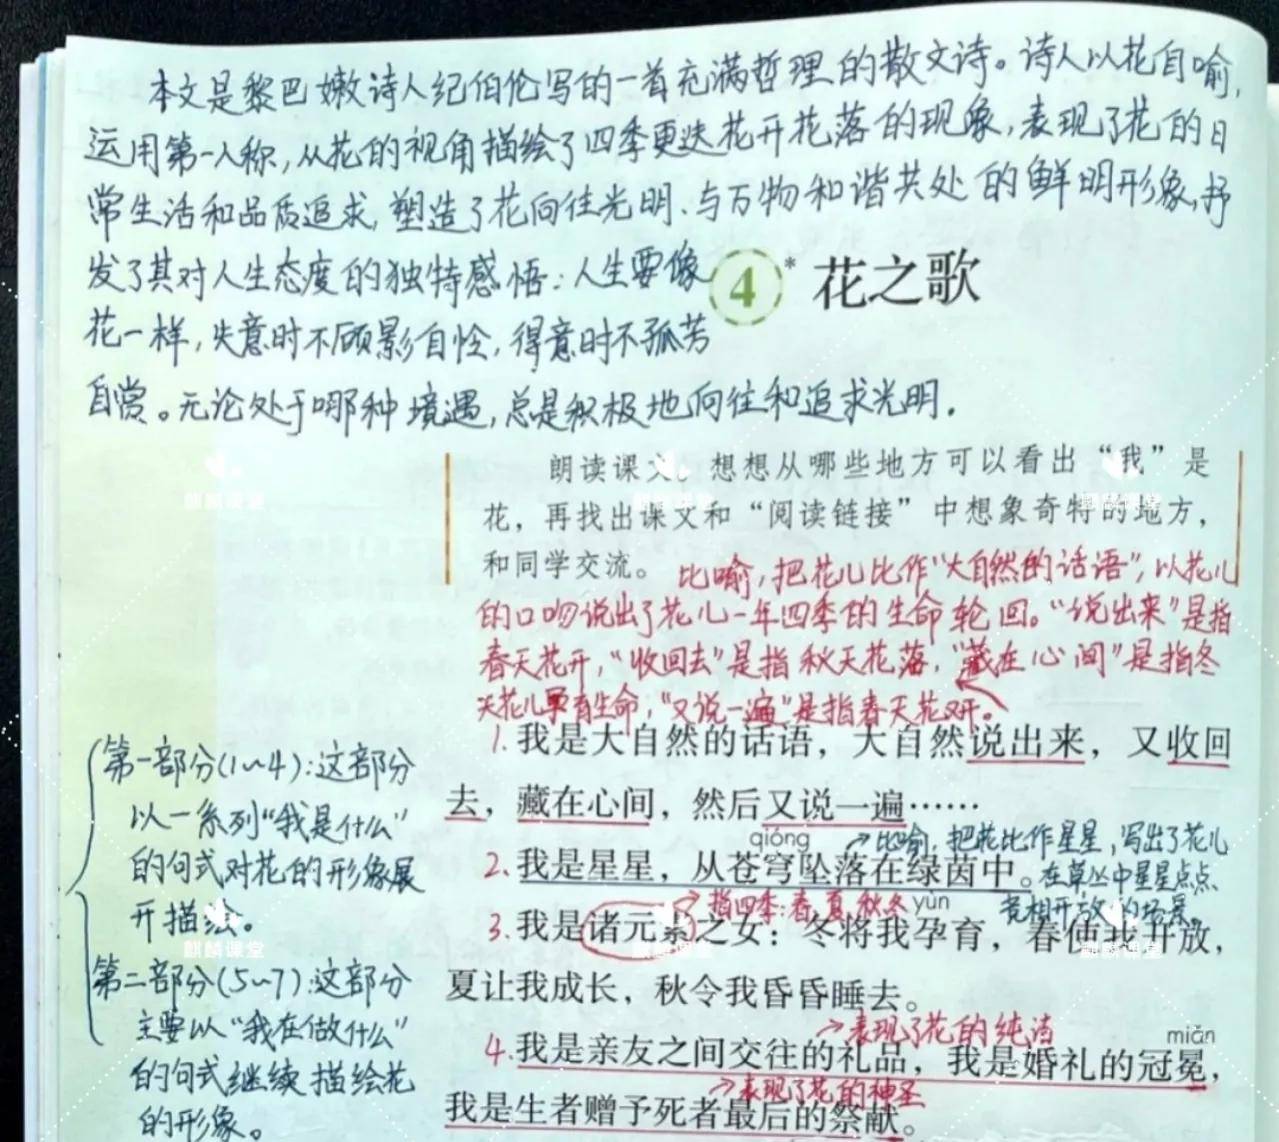 本文是黎巴嫩诗人纪伯伦写的一首充满哲理的散文诗。诗人以花自喻,
运用第一人称,从花的视角描绘了四季更迭花开花落的现象,表现了花的日
常生活和品质追求,塑造了花向往光明、与万物和谐共处的鲜明形象,抒
发了其对人生态度的独特感悟:人生要像
花一样,失意时不顾影自怜,得意时不孤芳
自赏。无论处于哪种境遇,总是积极地向往和追求光明.
4* 花之歌
朗读课文。想想从哪些地方可以看出“我”是
花,再找出课文和“阅读链接”中想象奇特的地方,
和同学交流。
比喻,把花儿比作“大自然的话语”,以花儿
的口吻说出了花儿一年四季的生命轮回。“说出来”是指
春天花开,“收回去”是指秋天花落,“藏在心间”是指冬
天花儿孕育生命,“又说一遍”是指春天花又开。
1.我是大自然的话语,大自然说出来,又收回
去,藏在心间,然后又说一遍……
qióng
→比喻,把花比作星星,写出了花儿
2.我是星星,从苍穹坠落在绿茵中。
在草丛中星星点点、
竞相开放的场景。
→指四季:春、夏、秋、冬
yùn
3.我是诸元素之女:冬将我孕育,春使我开放,
夏让我成长,秋令我昏昏睡去。
→表现了花的纯洁
miǎn
4.我是亲友之间交往的礼品,我是婚礼的冠冕,
→表现了花的神圣
我是生者赠予死者最后的祭献。
第一部分(1~4):这部分
以一系列“我是什么”
的句式对花的形象展
开描绘。
第二部分(5~7):这部分
主要以“我在做什么”
的句式继续描绘花
的形象。
麒麟课堂
麒麟课堂
麒麟课堂
麒麟课堂
麒麟课堂
麒麟课堂